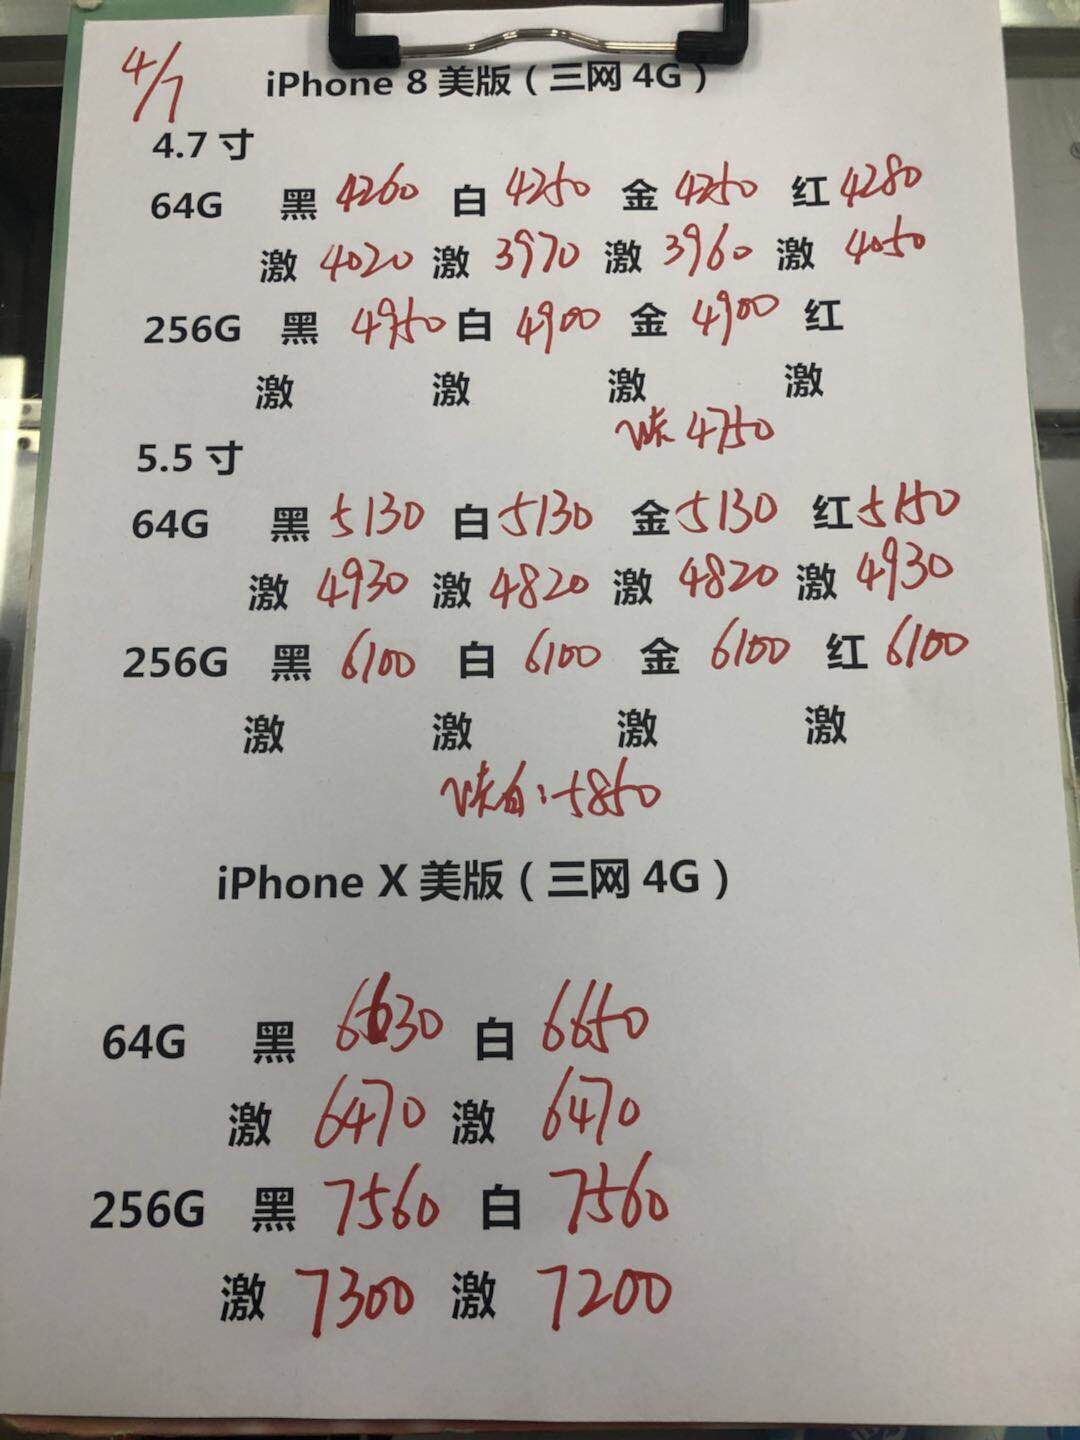 4/7
iPhone 8 美版（三网 4G）
4.7 寸
64G 黑 4260 白 4250 金 4250 红 4280
激 4020 激 3970 激 3960 激 4050
256G 黑 4950 白 4900 金 4900 红
激 激 激 激
4750
5.5 寸
64G 黑 5130 白 5130 金 5130 红 5150
激 4930 激 4820 激 4820 激 4930
256G 黑 6100 白 6100 金 6100 红 6100
激 激 激 激
白：5850
iPhone X 美版（三网 4G）
64G 黑 6630 白 6650
激 6470 激 6470
256G 黑 7560 白 7560
激 7300 激 7200